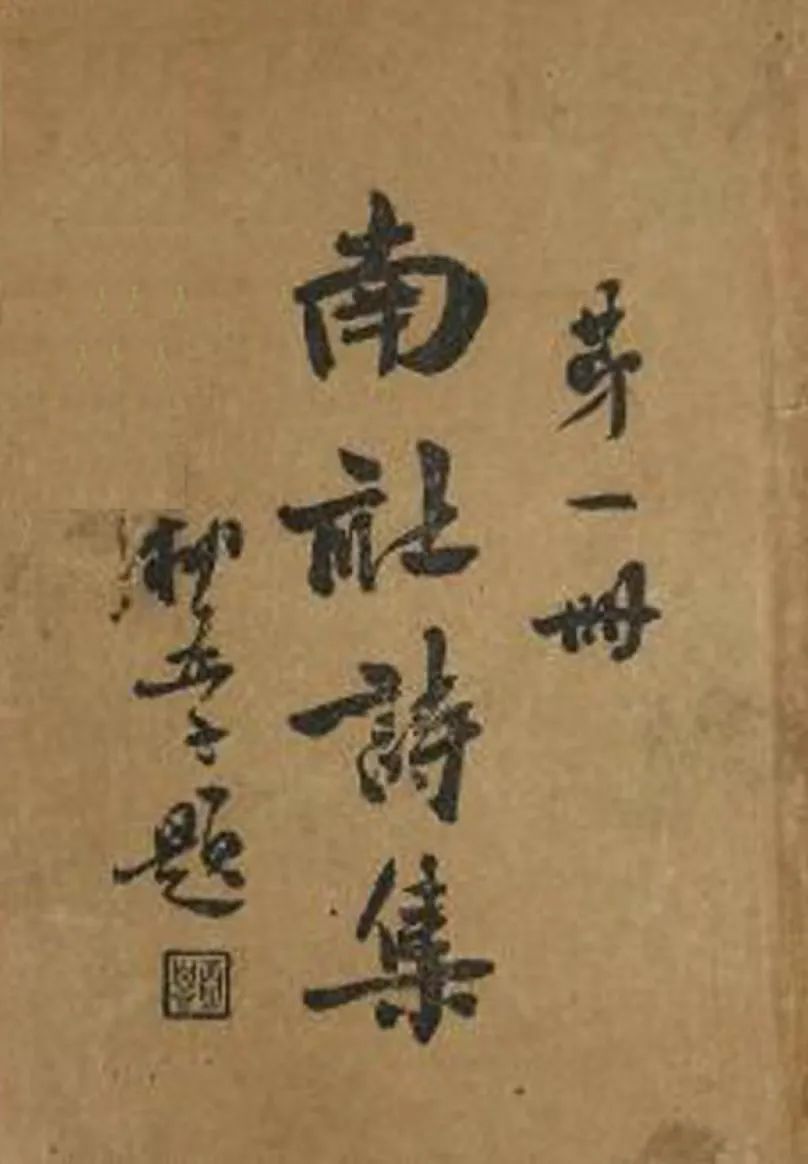 第一冊
南社詩集
柳亞子題